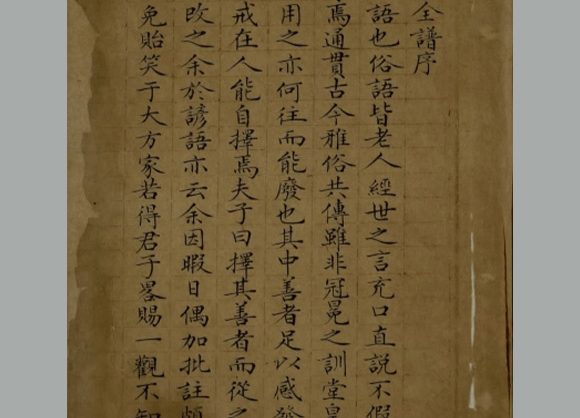 全譜序
語也俗語皆老人經世之言充口直説不假
焉通貫古今雅俗共傳雖非冠冕之訓堂皇
用之亦何往而能廢也其中善者足以感發
戒在人能自擇焉夫子曰擇其善者而從之
改之余於諺語亦云余因暇日偶加批註
免貽笑于大方家若得君子畧賜一觀不知